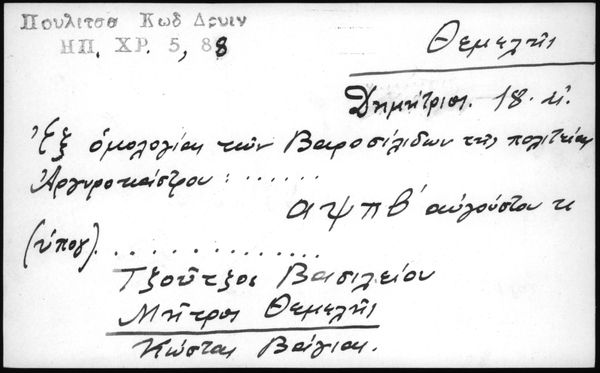 Πουλιτσα Κωδ Δρυιν
ΗΠ. ΧΡ. 5, 88
Θεμελῆς
Δημήτριος. 18. αἰ.
Ἐξ ὁμολογίας τῶν Βαροσίλιδων τῆς πολιτείας
Ἀργυροκάστρου : . . . . . .
αψπβ' αὐγούστου κ
(ὑπογ). . . . . . . . . . . . . . .
Τζοῦτζος Βασιλείου
Μῆτρος Θεμελῆς
Κώστας Βάγιας.